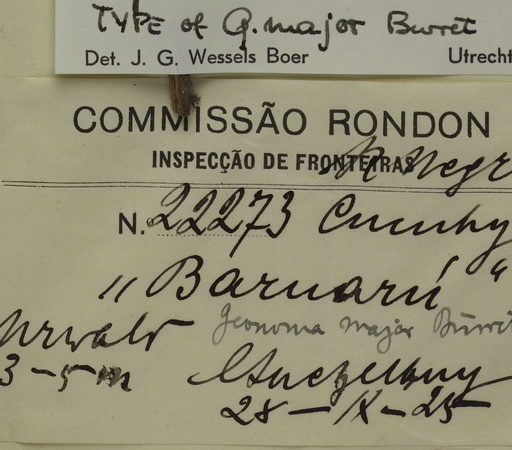 TYPE of G. major Burret
Det. J. G. Wessels Boer Utrecht
COMMISSÃO RONDON
INSPECÇÃO DE FRONTEIRAS
R. Negr
N. 22273 Cucuhy
„ Baruarú “
Urwald Geonoma major Burret
3-5 m
28-IX-25